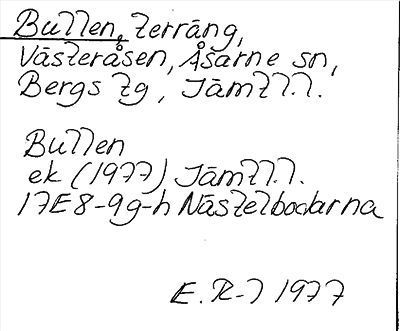 Bullen, terräng,
Västeråsen, Åsarne sn,
Bergs tg, Jämtl.l.
Bullen
ek (1977) Jämtl.l.
17E8-9g-h Nästelbodarna
E. R-l 1977